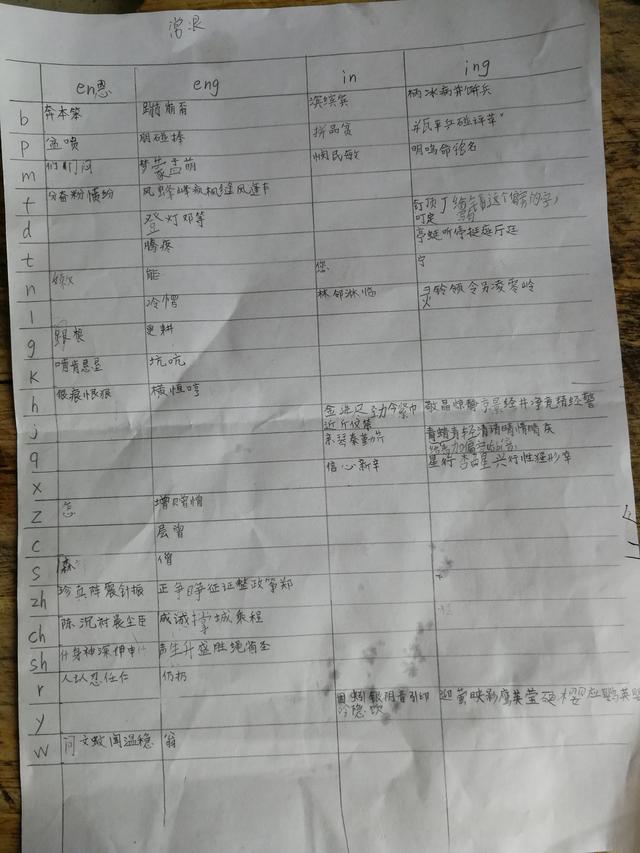 en恩 eng in ing
b 奔本笨 蹦崩 滨缤宾 柄冰病 饼兵
p 盆喷 朋碰捧 拼品 乒碰评苹
m 们门闷 梦蒙孟萌 悯民敏 明鸣命名
f 分奋粉愤纷 风 峰疯枫缝凤逢
d 登灯邓等 钉顶丁 这个 的字,
叮定
t 腾疼 亭蜓听停挺庭厅廷
n 嫩 能 您 宁
l 冷愣 林邻淋临 灵铃领令另凌零岭
g 跟根 更耕
k 啃肯恳垦 坑吭
h 很痕恨狠 横恒哼
j 金进尽劲今紧巾 敬晶惊静京景经井净竟精经警
近斤仅禁
q 亲琴秦勤芹 青蜻 轻清请晴情
x 信心新辛 星行 兴 性 形幸
z 怎 增赠憎
c 层曾
s 森 僧
zh 珍真阵震针振 正争睁征证整政筝郑
ch 陈沉衬晨尘臣 成诚撑城乘程
sh 什身神深伸申 声生升盛胜绳省圣
r 人认忍任仁 仍扔
y 因蚓银阴音引印 迎萤映影鹰英莹硬樱应鹦
隐饮
w 问文蚊闻温稳 翁